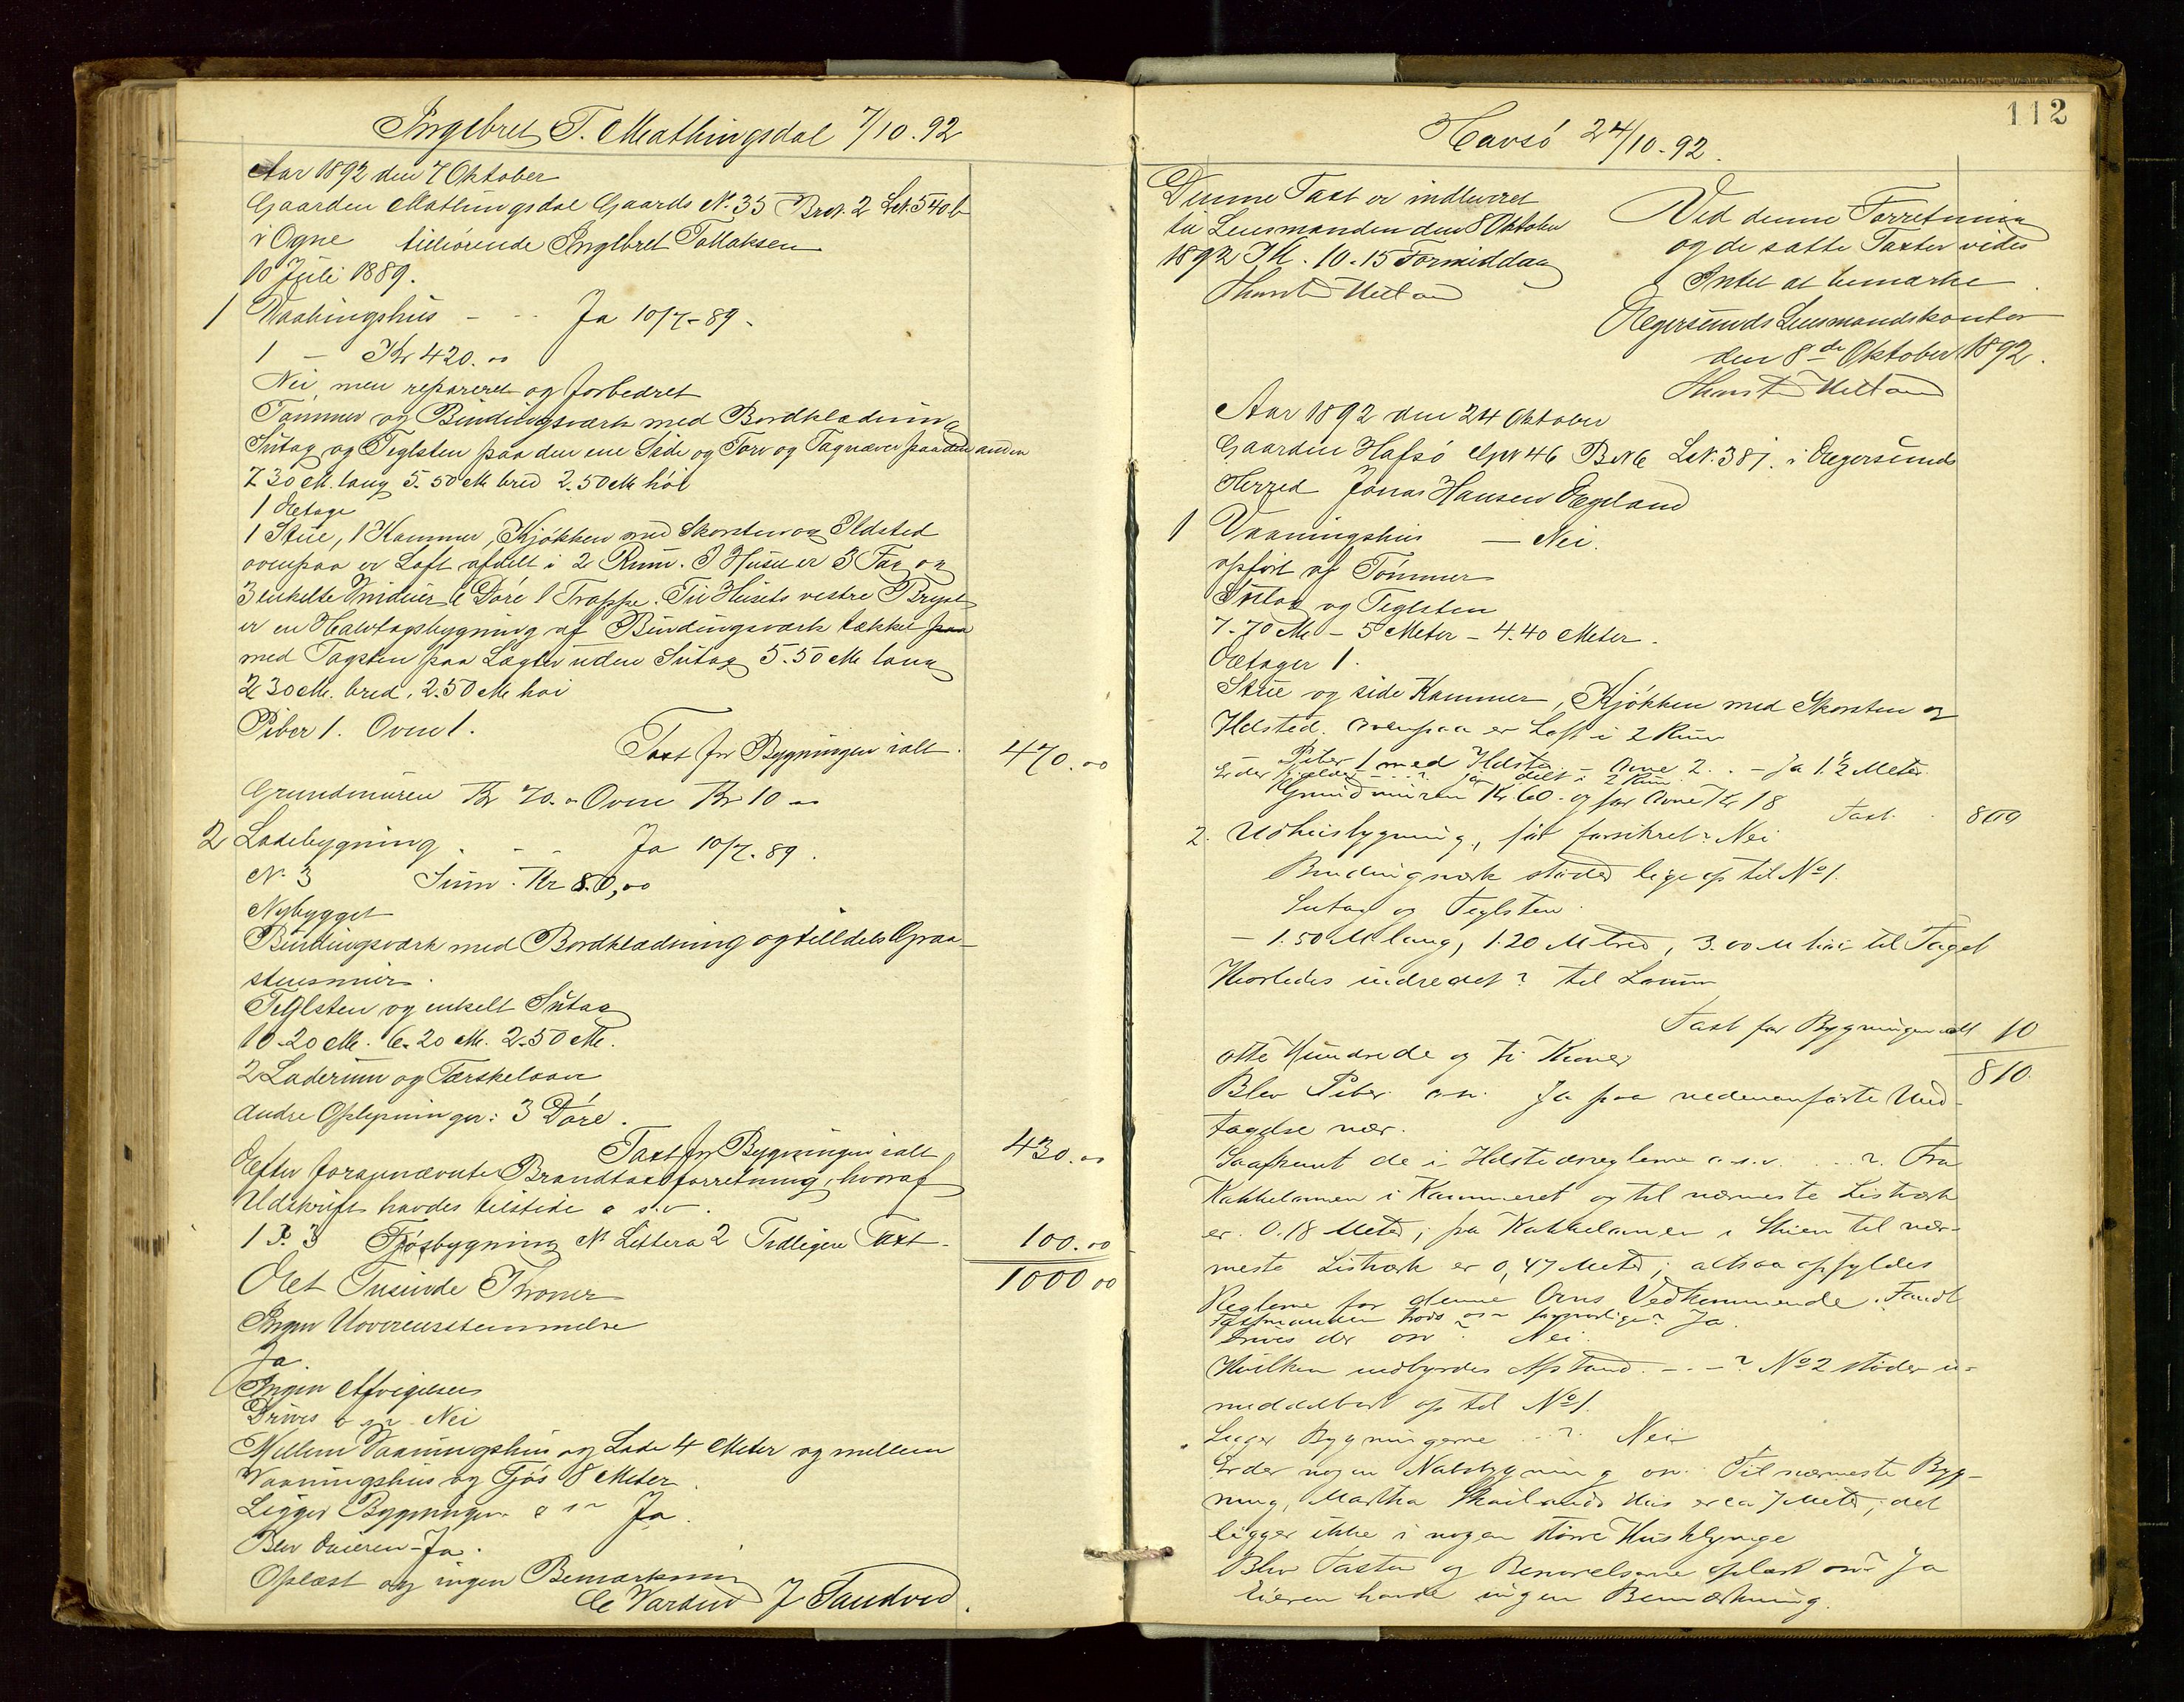 Ingebret T. Mathingsdal 7/10.92
Aar 1892 den 7 Oktober
Gaarden Mathingsdal Gaards No. 35 Brn. 2 LN. 540 b
i Ogne tilhørende Ingebret Tollaksen
10 Juli 1889.
1 Vaaningshus - - - Ja 10/7-89.
1 - Kr 420.00
Nei, men repareret og forbedret
Tømmer og Bindingsværk med Bordklædning
Sutag og Teglsten paa den ene Side og Torv og Tagnæver paa den anden
7.30 M. lang 5.50 M bred 2.50 M høi
1 Etage
1 Stue, 1 Kammer, Kjøkken med Skorsten og Ildsted
ovenpaa er Loft afdelt i 2 Rum. I Huset er 3 Fag og
3 enkelte Vinduer 6 Døre 1 Trappe. Til Husets vestre Bryst
er en Halvtagsbygning af Bindingsværk tækket paa
med Tagsten paa Lægter uden Sutag 5.50 M lang
2.30 M. bred, 2.50 M høi
Piber 1. Ovne 1.
Taxt for Bygningen ialt. 470.00
Grundmuren Kr 70.00 Ovne Kr 10 00
2 Ladebygning. - - Ja 10/7.89.
No 3 Sum. Kr 80,00
Nybygget
Bindingsværk med Bordklædning og tilldels Graa-
stensmur.
Teglsten og enkelt Sutag
10.20 M. 6.20 M. 2.50 M.
2 Laderum og Tærskeloave
Andre Oplysninger: 3 Døre.
Taxt for Bygningen ialt 430.00
Efter forannævnte Brandtaxtforretning, hvoraf
Udskrift havdes tilstede o s.v.
1 P. 3 Fjøsbygning No Littera 2 Tidligere Taxt - 100.00
Et Tusinde Kroner 1000 00
Ingen Uoverensstemmelse
Ja.
Ingen Afvigelser
Drives o s v - Nei
Mellem Vaaningshus og Lade 4 Meter og mellem
Vaaningshus og Fjøs 8 Meter.
Ligger Bygningen o s v Ja.
Blev Eieren - Ja.
Oplæst og ingen Bemærkning
C Varden J Sandved.
112
Havsø 24/10.92.
Denne Taxt er indleveret
til Lensmanden den 8 Oktober
1892 Kl. 10.15 Formiddag
Ved denne Forretning
og de satte Taxter vides
Intet at bemærke
Egersunds Lensmandskontor
den 8de Oktober 1892.
Aar 1892 den 24 Oktober
Gaarden Hafsø Gno 46 BN 6 LN. 381. i Egersunds
Herred Jonas Hansen Egeland
1 Vaaningshus - Nei.
opført af Tømmer
Sutag og Teglsten
7.70 M - 5 Meter - 4.40 Meter.
Etager 1.
Stue og side Kammer, Kjøkken med Skorsten og
Ildsted. ovenpaa er Loft i 2 Rum
- Piber 1 med Ildsted - Ovne 2. - Ja 1 1/2 Meter
Er der Kjelder - - ? Ja delt i 2 Rum
Grundmuren Kr. 60. og for Ovne Kr 18
Taxt. 800
2. Udhusbygning, før forsikret? Nei
Bindingsværk støder lige op til No 1.
Sutag og Teglsten.
- 1.50 M lang, 1.20 M bred, 3.00 M høi til Taget
Hvorledes indredet? til Lokum
Taxt for Bygningen ialt 10
otte Hundrede og ti Kroner 810.
Blev Piber osv. Ja paa nedenanførte Und-
tagelse nær.
Saafremt de i Ildstedsreglerne o.s.v. . . .? Fra
Kakkelovnen i Kammeret og til nærmeste Listværk
er 0.18 Meter, fra Kakkelovnen i Stuen til nær-
meste Listværk er 0,47 Meter; altsaa opfyldes
Reglerne for denne Ovns Vedkommende. Fandt
Taxtmanden osv Ja.
Drives der osv? Nei.
Hvilken indbyrdes Afstand. - - -? No 2 støder u-
middelbart op til No 1.
Ligger Bygningerne - - ? Nei
Er der nogen Nabobygning osv. Til nærmeste Byg-
ning, Martha Skailands Hus er ca 7 Meter, det
ligger ikke i nogen større Husklynge
Blev Taxten og Benævelserne oplæst osv? Ja
Eieren havde ingen Bemærkning.